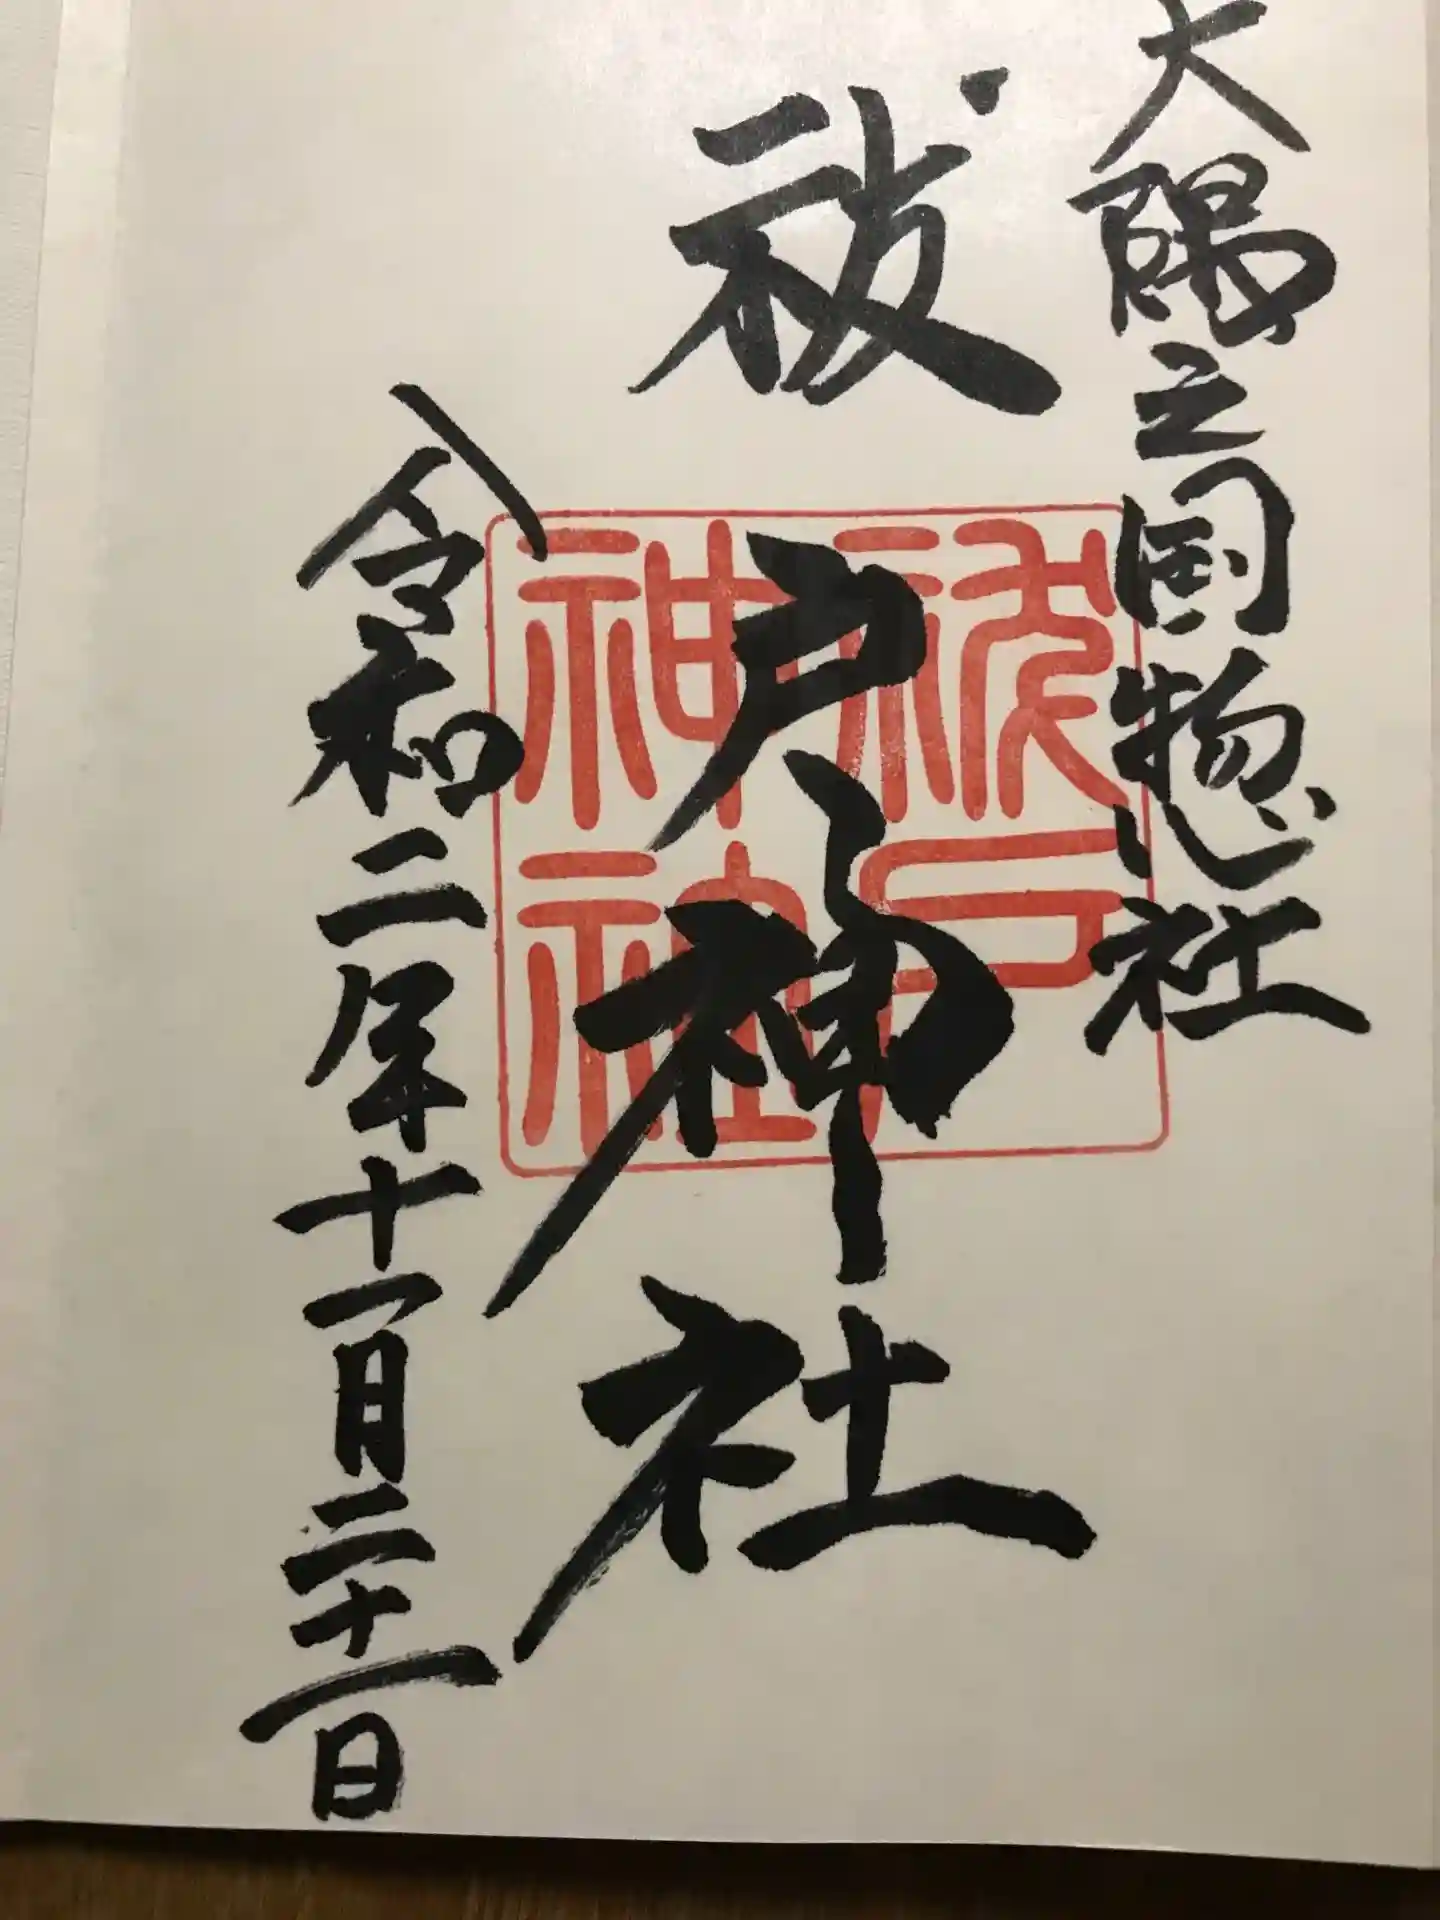 大隅之国惣社
祓戸神社
令和二年十一月二十一日
祓戸
神社